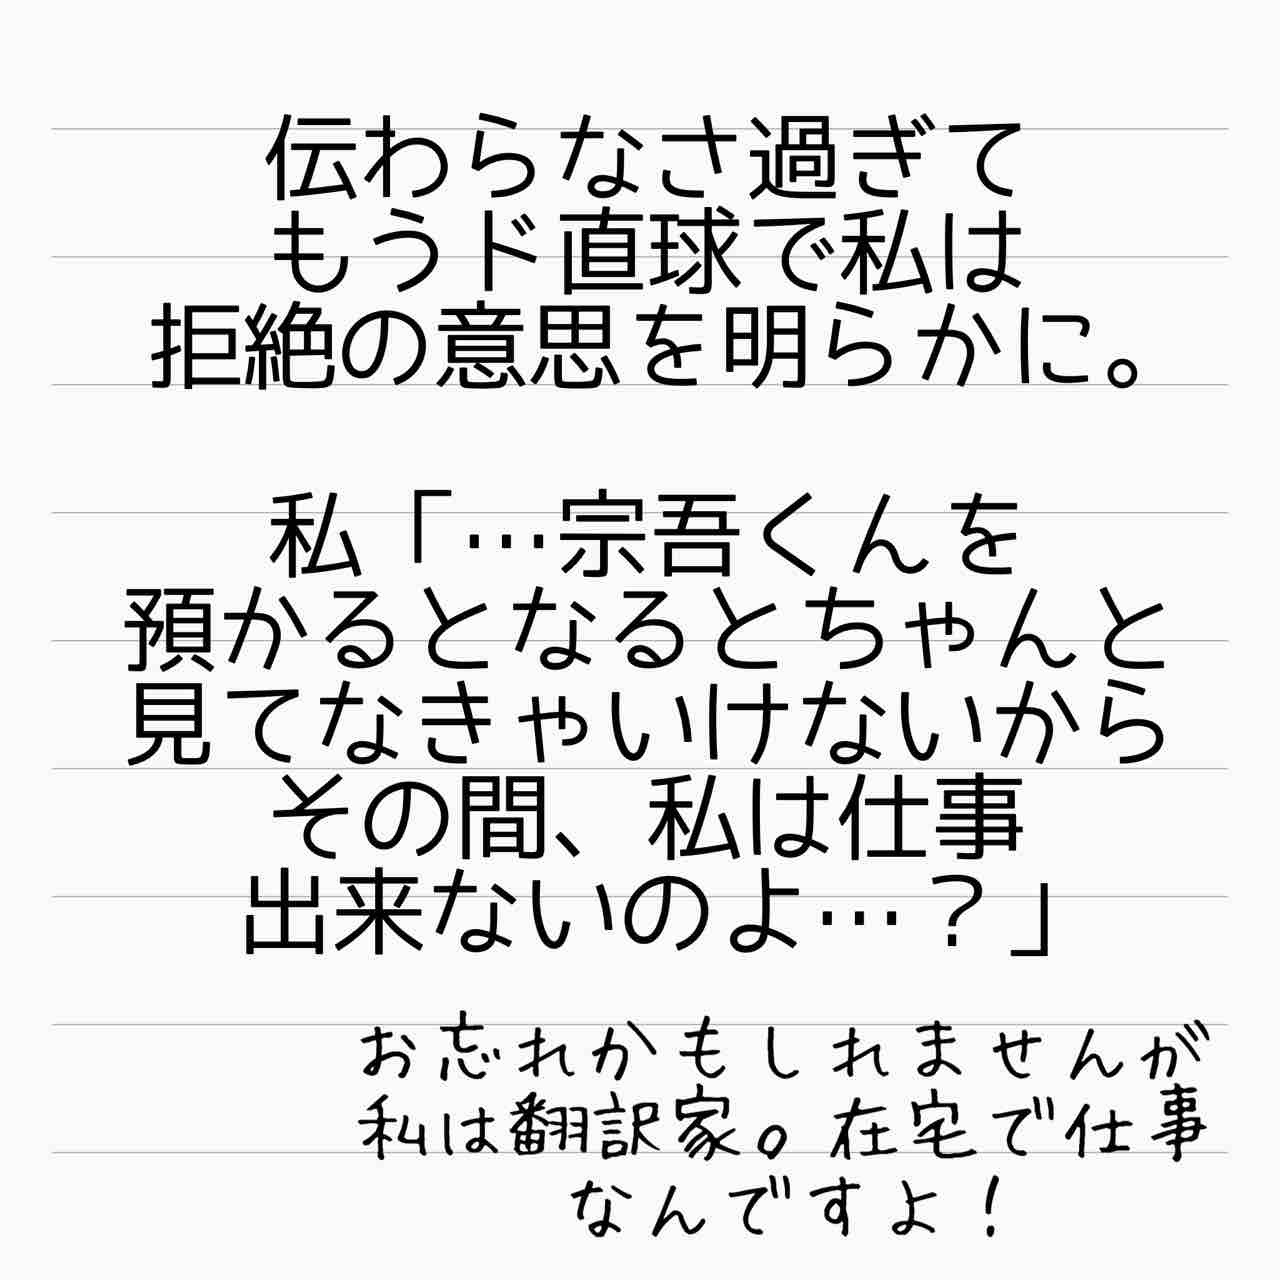 伝わらなさ過ぎて
もうド直球で私は
拒絶の意思を明らかに。
私「…宗吾くんを
預かるとなるとちゃんと
見てなきゃいけないから
その間、私は仕事
出来ないのよ…？」
お忘れかもしれませんが
私は翻訳家。在宅で仕事
なんですよ！